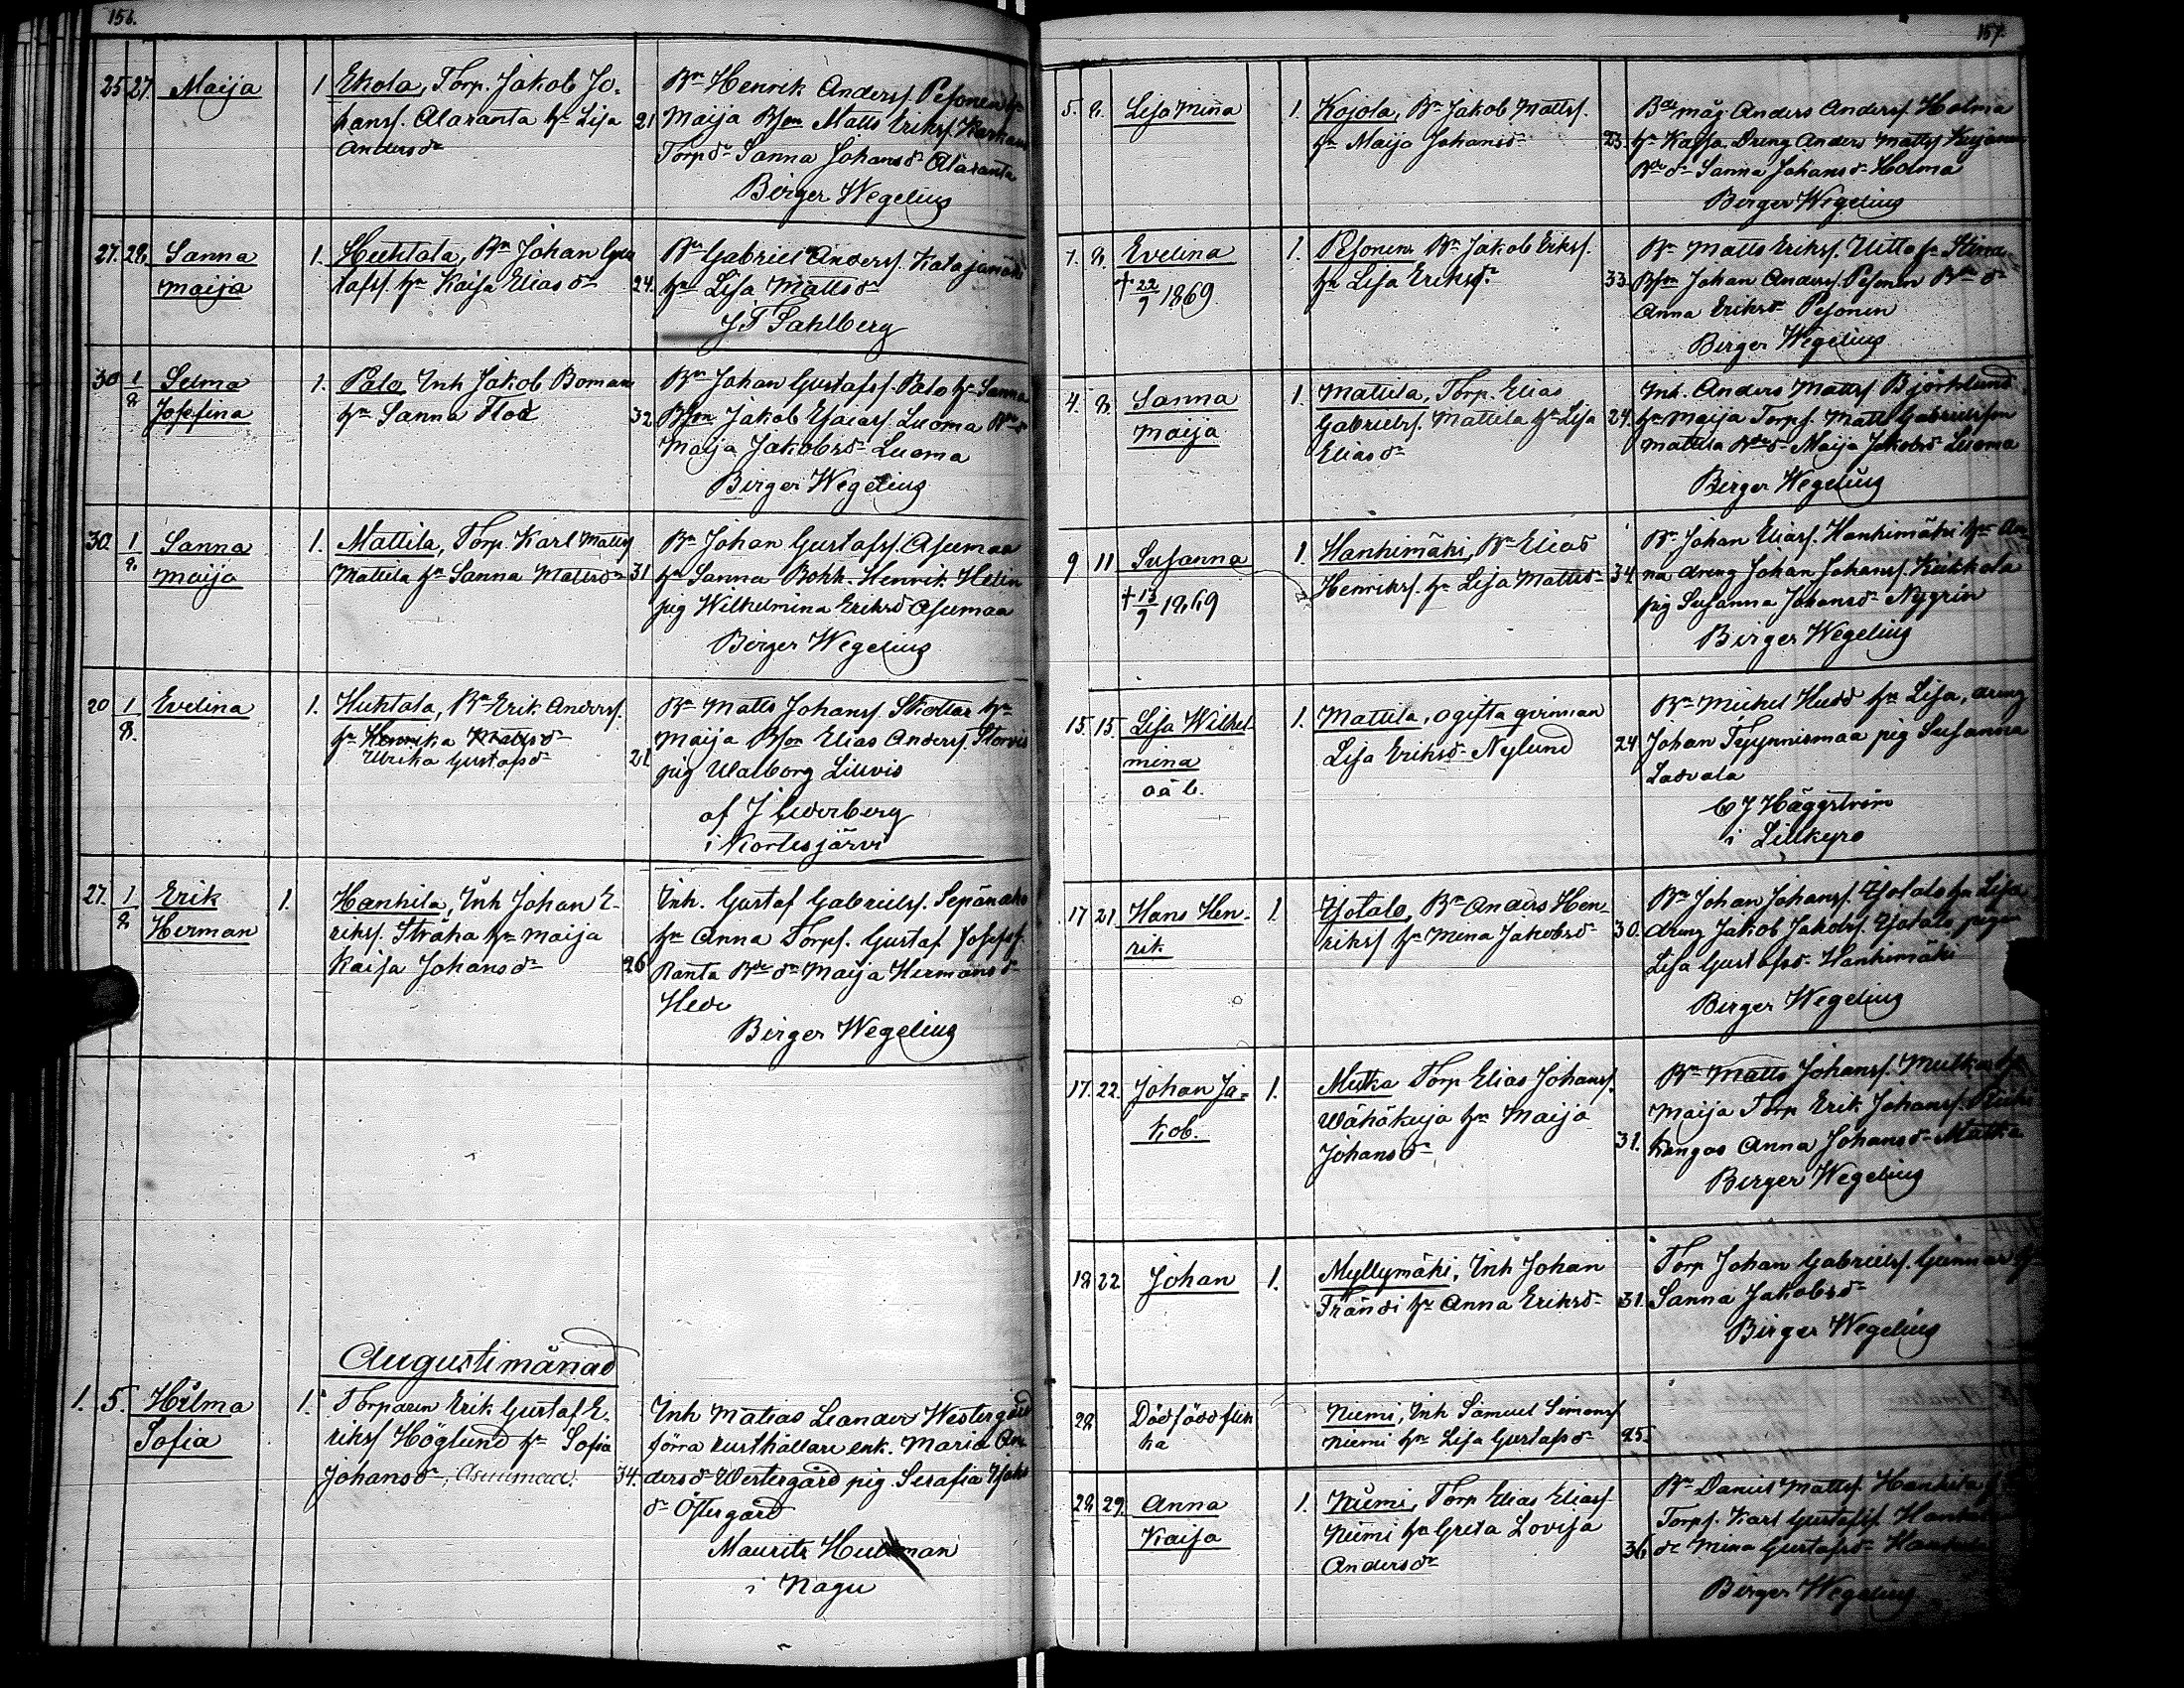 156.
25 27. Maija 1 Ekola, Torp. Jakob Jo-
hanss. Alaranta hu Lisa 21
Andersdr
Bn Henrik Anderss. Pesonen hu
Maija Bson Matts Erikss.
Torpdr Sanna Johansdr Alaranta
Birger Wegelius
27. 28. Sanna
Maija
1. Huhtala, Bn Johan Gus
tafss. hu Kaisa Eliasdr 24.
Bn Gabriel Anderss. Katajamäki
hu Lisa Mattsdr
J F Sahlberg
30 1/8 Selma
Josefina
1. Palo Inh Jakob Boman
hu Sanna Flod 32
Bn Johan Gustafss. Palo hu Sanna
Bson Jakob Esaiass. Luoma Bndr
Maija Jakobsdr Luoma
Birger Wegelius
30. 1/8 Sanna
Maija
1. Mattila, Torp. Karl Mattss
Mattila hu Sanna Mattsdr 31
Bn Johan Gustafss. Asumaa
hu Sanna Bokh. Henrik Helin
pig Wilhelmina Eriksd Asumaa
Birger Wegelius
20 1/8. Evelina
1. Huhtala, Bn Erik Anderss.
hu Henrika Mattsdr
Ulrika Gustafsdr 21
Bn Matts Johanss. hu
Maija Bson Elias Anderss.
pig Walborg
af J Cederberg
i Kortesjärvi
27. 1/8 Erik
Herman
1. Hanhila, Inh Johan E-
rikss. Stråka hu Maija
Kaisa Johansdr 26
Inh. Gustaf Gabrielss. Sepänaho
hu Anna Torps. Gustaf Josefss.
Ranta Bdedr Maija Hermansdr
Hede
Birger Wegelius
Augusti månad
1. 5. Hilma
Sofia
1. Torparen Erik Gustaf E-
rikss Höglund hu Sofia
Johansdr, Asunmaa. 34.
Inh Matias Leander Westergård
förra rusthållare enk. Maria An
dersdr Westergård pig. Serafia
dr Östergård
Maurits
i Nagu
157.
5. 8. Lisa Mina
1. Kojola, Bn Jakob Mattss.
hu Maija Johansdr 23.
Bdes måg Anders Anderss. Holma
hu Kaisa Dreng Anders Mattss
Bdedr Sanna Johansdr Holma
Birger Wegelius
7. 8. Evelina
† 22/9 1869.
1. Pesonen Bn Jakob Erikss.
hu Lisa Eriksdr 33.
Bn Matts Erikss. Uitto hu
Bson Johan Anderss. Pesonen Bndr
Anna Eriksdr Pesonen
Birger Wegelius
4. 8. Sanna
Maija
1. Mattila, Torp. Elias
Gabrielss. Mattila hu Lisa 24.
Eliasdr
Inh. Anders Mattss Björklund
hu Maija Torps. Matts Gabrielsson
Mattila Bdedr Maija Jakobsd Luoma
Birger Wegelius
9 11 Susanna
† 13/9 1869
1. Hanhimäki, Bn Elias
Henrikss. hu Lisa Mattsdr 34.
Bn Johan Eliass. Hanhimäki hu An
na dreng Johan Johanss. Kukkola
pig Susanna Johansdr Nygrén
Birger Wegelius
15. 15. Lisa Wilhel-
mina
o ä b.
1. Mattila, ogifta qvinnan
Lisa Eriksdr Nylund 24
Bn Mickel Hudd hu Lisa, dreng
Johan Tyynnismaa pig Susanna
Ladvala
C J Häggström
i Lillkyro
17 21. Hans Hen-
rik
1. Ylotalo, Bn Anders Hen-
rikss hu Mina Jakobsdr 30.
Bn Johan Johanss. Ylotalo hu Lisa
dreng Jakob Jakobss. Ylotalo pigan
Lisa Gustafsdr Hanhimäki
Birger Wegelius
17. 22. Johan Ja-
kob.
1. Mutka Torp Elias Johanss.
Wähäkuja hu Maija 31.
Johansdr
Bn Matts Johanss. Mutka hu
Maija Torp Erik Johanss.
kangas Anna Johansdr Mutka
Birger Wegelius
18 22 Johan
1. Myllymäki, Inh Johan
Frändi hu Anna Eriksdr 31.
Torp Johan Gabrielss. Gunnar hu
Sanna Jakobsdr
Birger Wegelius
28 Dödfödd flick
ka
Niemi, Inh Samuel Simonss
Niemi hu Lisa Gustafsdr 25.
28 29. Anna
Kaisa
1. Niemi, Torp Elias Eliass
Niemi hu Greta Lovisa
Andersdr 36
Bn Daniel Mattss. Hanhila
Torps. Karl Gustafss
dr Mina Gustafsdr
Birger Wegelius